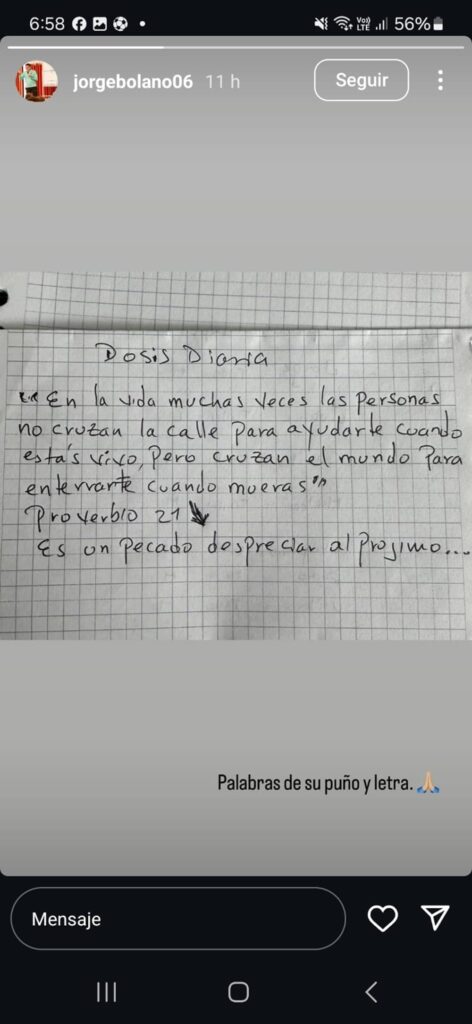 6:58
56%
jorgebolano06 11 h
Seguir
Dosis Diaria
"En la vida muchas veces las personas
no cruzan la calle para ayudarte cuando
está's vivo, pero cruzan el mundo para
enterrarte cuando mueras"
Proverbio 21
Es un pecado despreciar al projimo...
Palabras de su puño y letra.🙏🏼
Mensaje